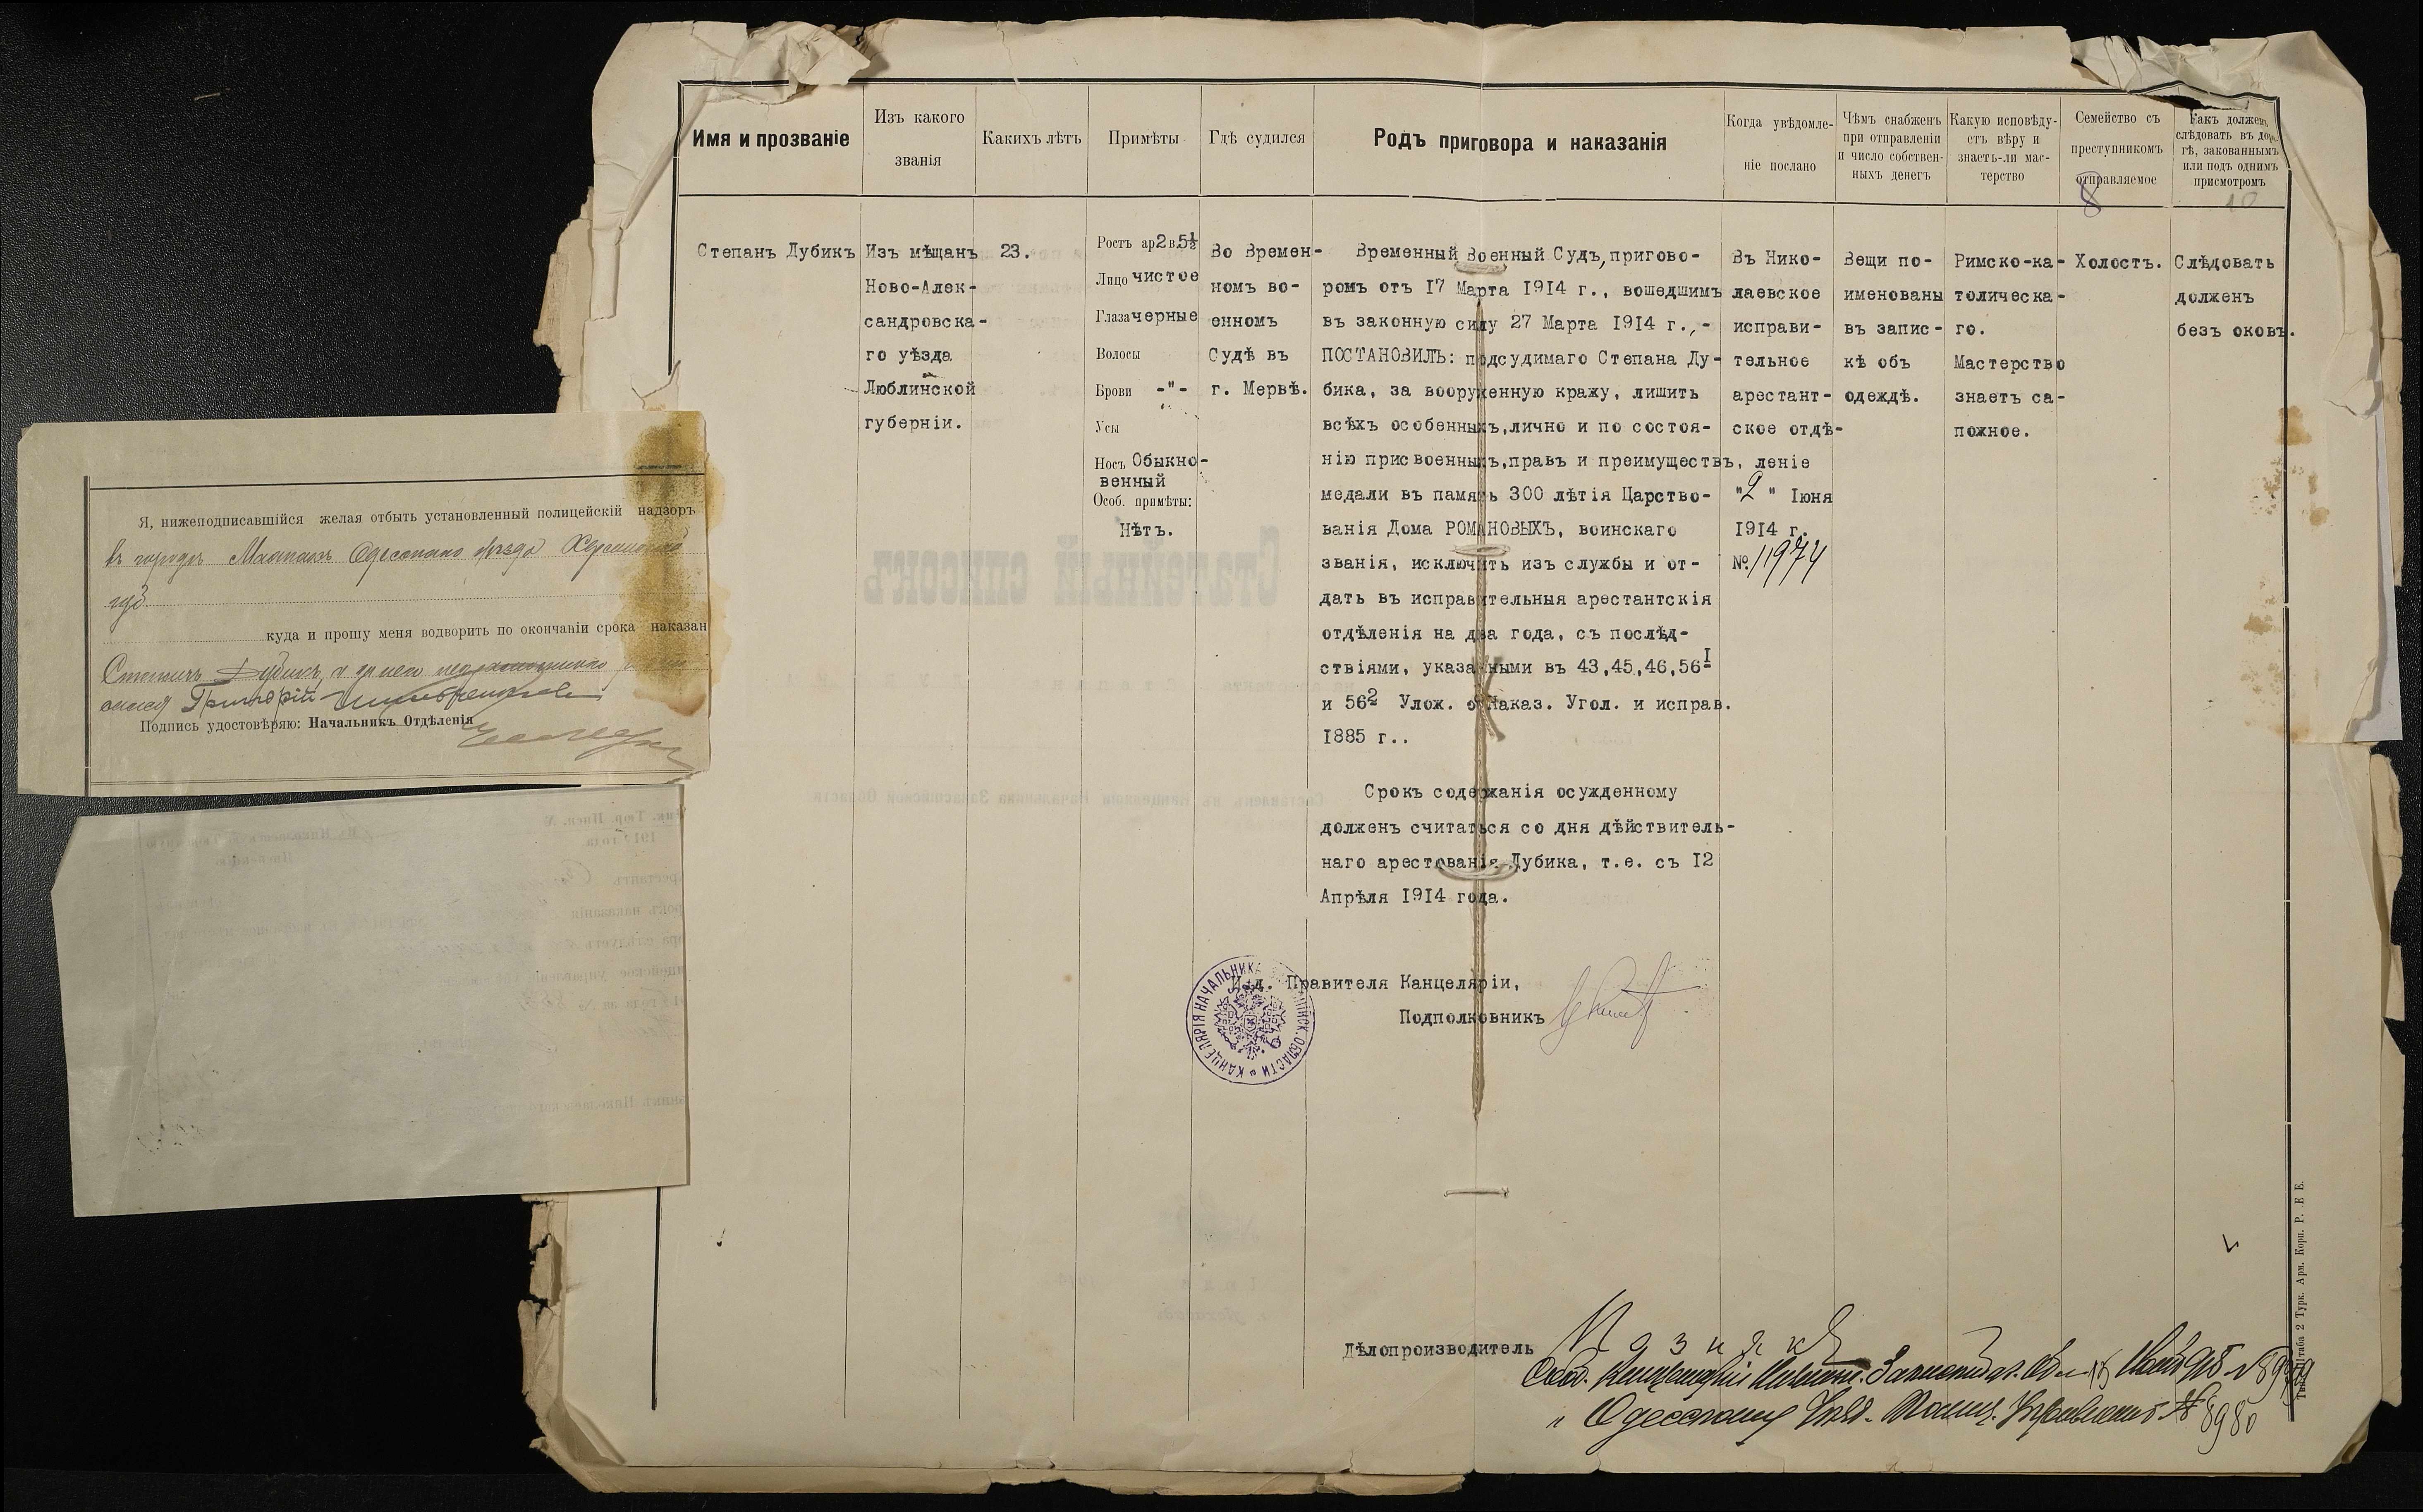 Имя и прозваніе
Изъ какого
званія
Какихъ лѣтъ
Примѣты
Гдѣ судился
Родъ приговора и наказанія
Когда увѣдомле-
ніе послано
Чѣмъ снабженъ
при отправленіи
и число собствен-
ныхъ денегъ
Какую исповѣду-
етъ вѣру и
знаетъ-ли мас-
терство
Семейство съ
преступникомъ
отправляемое
8
Какъ долженъ
слѣдовать въ доро-
гѣ, закованнымъ
или подъ однимъ
присмотромъ
10
Степанъ Дубикъ
Изъ мѣщанъ
Ново-Алек-
сандровска-
го уѣзда
Люблинской
губерніи.
23.
Ростъ ар.2 в.5½
Лицо чистое
Глаза черные
Волосы
Брови -"-
Усы
Носъ Обыкно-
венный
Особ. примѣты:
Нѣтъ.
Во Времен-
номъ во-
енномъ
Судѣ въ
г. Мервѣ.
Временный Военный Судъ, пригово-
ромъ отъ 17 Марта 1914 г., вошедшимъ
въ законную силу 27 Марта 1914 г.,-
ПОСТАНОВИЛЪ: подсудимаго Степана Ду-
бика, за вооруженную кражу, лишить
всѣхъ особенныхъ, лично и по состоя-
нію присвоенныхъ, правъ и преимуществъ,
медали въ память 300 лѣтія Царство-
ванія Дома РОМАНОВЫХЪ, воинскаго
званія, исключить изъ службы и от-
дать въ исправительныя арестантскія
отдѣленія на два года, съ послѣд-
ствіями, указанными въ 43,45,46,56I
и 562 Улож. о Наказ. Угол. и исправ.
1885 г..
Срокъ содержанія осужденному
долженъ считаться со дня дѣйствитель-
наго арестованія Дубика, т.е. съ 12
Апрѣля 1914 года.
И.д. Правителя Канцеляріи,
Подполковникъ
Въ Нико-
лаевское
исправи-
тельное
арестант-
ское отдѣ-
леніе
"2" Іюня
1914 г.
№ 11974
Вещи по-
именованы
въ запис-
кѣ объ
одеждѣ.
Римско-ка-
толическа-
го.
Мастерство
знаетъ са-
пожное.
Холостъ.
Слѣдовать
долженъ
безъ оковъ.
КАНЦЕЛЯРІЯ НАЧАЛЬНИКА ОБЛАСТИ
Дѣлопроизводитель
8980
Я, нижеподписавшійся желая отбыть установленный полицейскій надзоръ
въ городѣ Маякахъ Одесскаго уѣзда Херсонской
губ.
куда и прошу меня водворить по окончаніи срока наказан
Степанъ Дубикъ, а за него неграмотнаго
Григорій
Подпись удостовѣряю: Начальникъ Отдѣленія
Статейный списокъ
Составленъ въ Канцеляріи Начальника Закаспійской Области
Штаба 2 Турк. Арм. Корп. Р. Е Е.